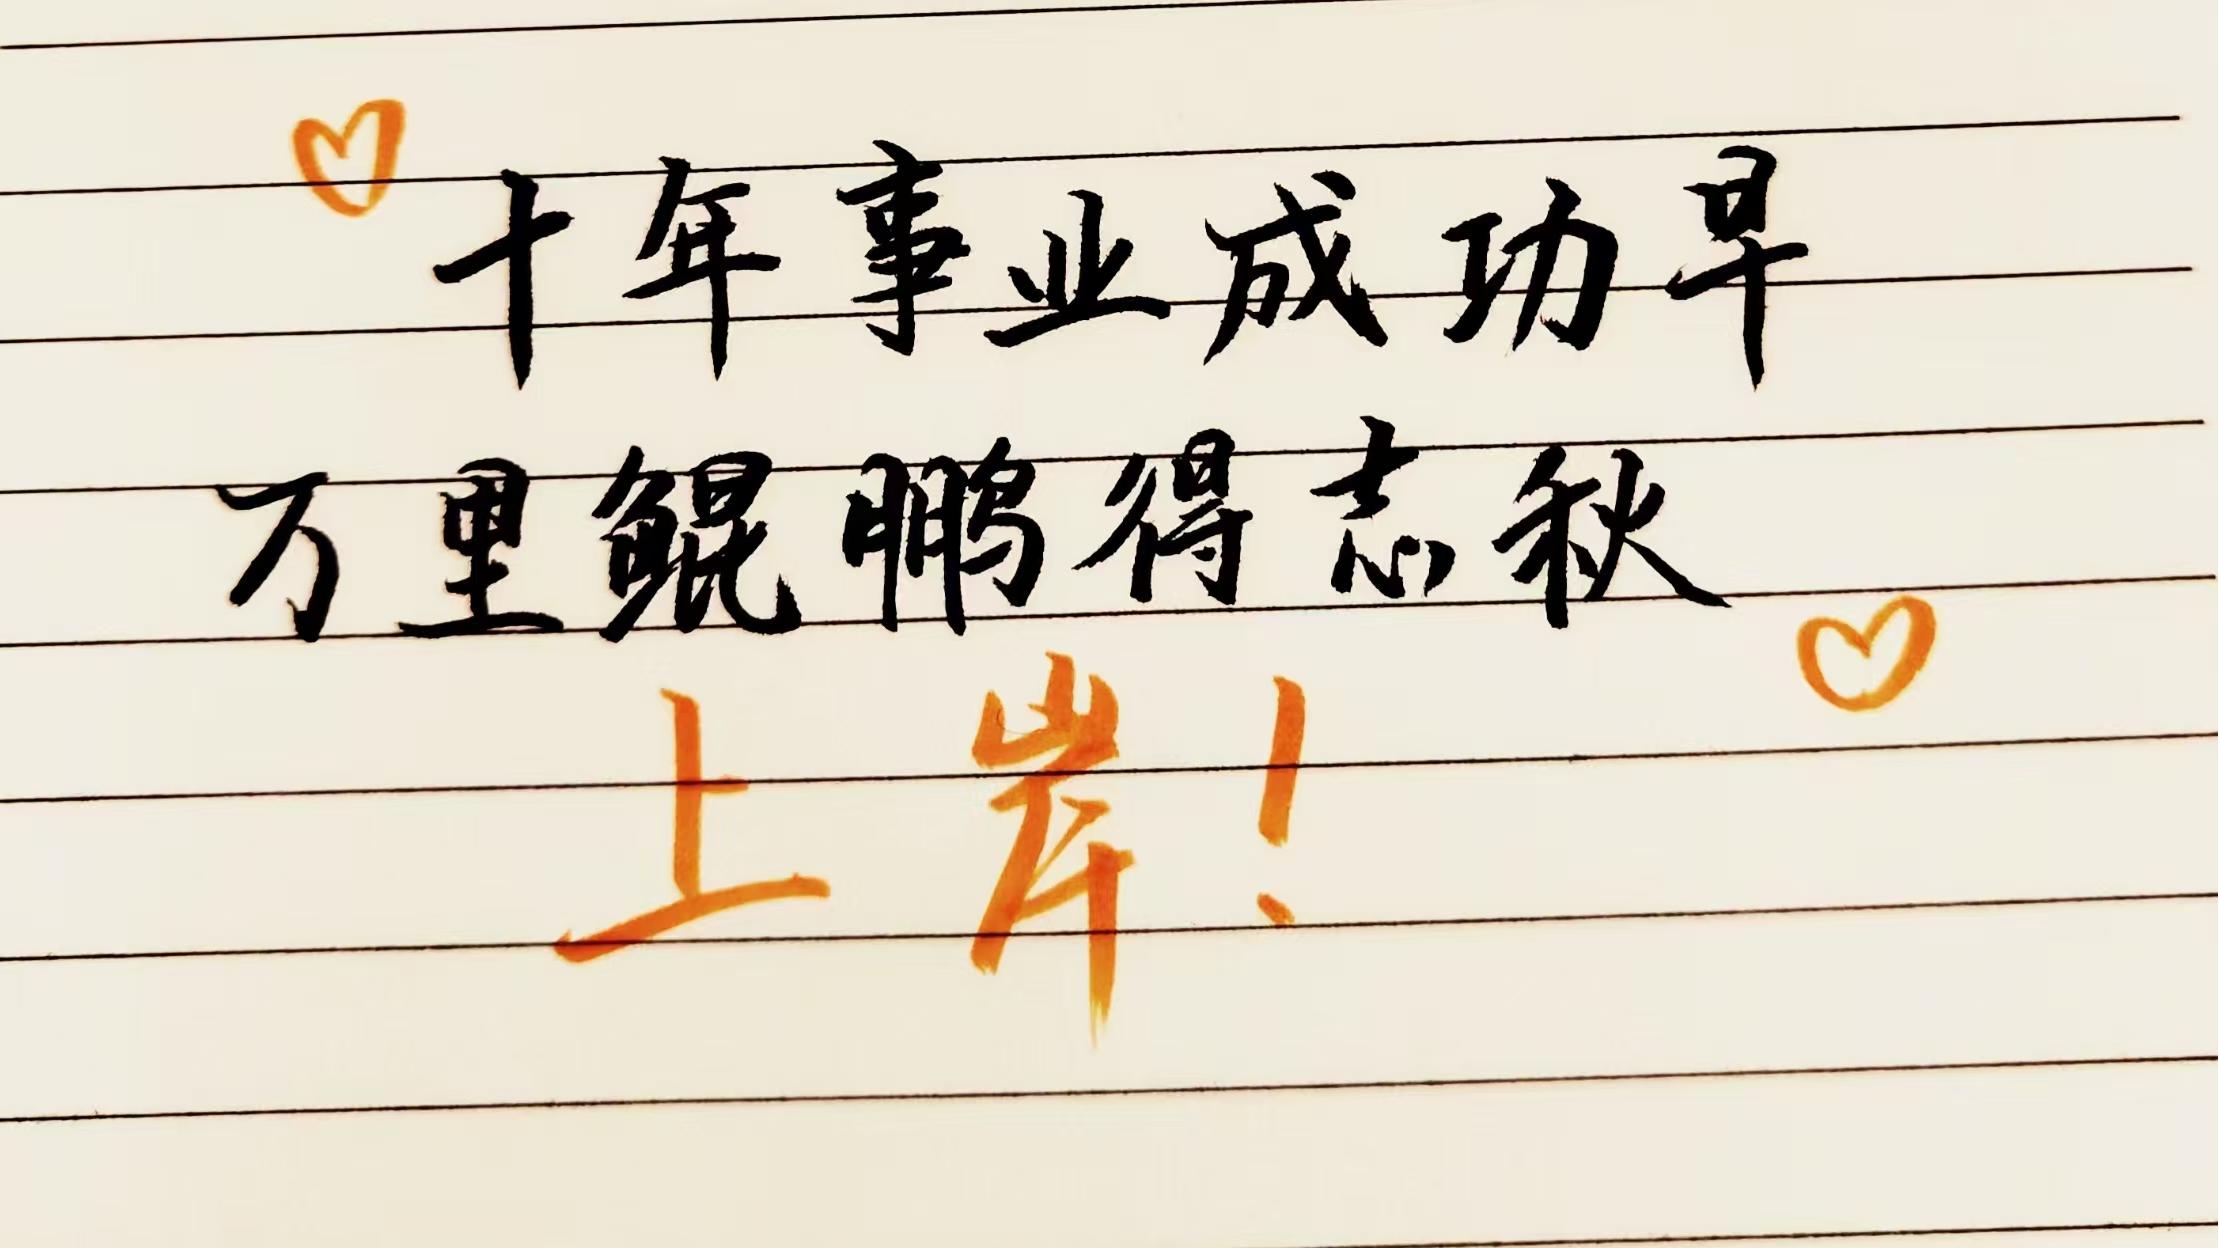 十年事业成功早
万里鲲鹏得志秋
上岸！